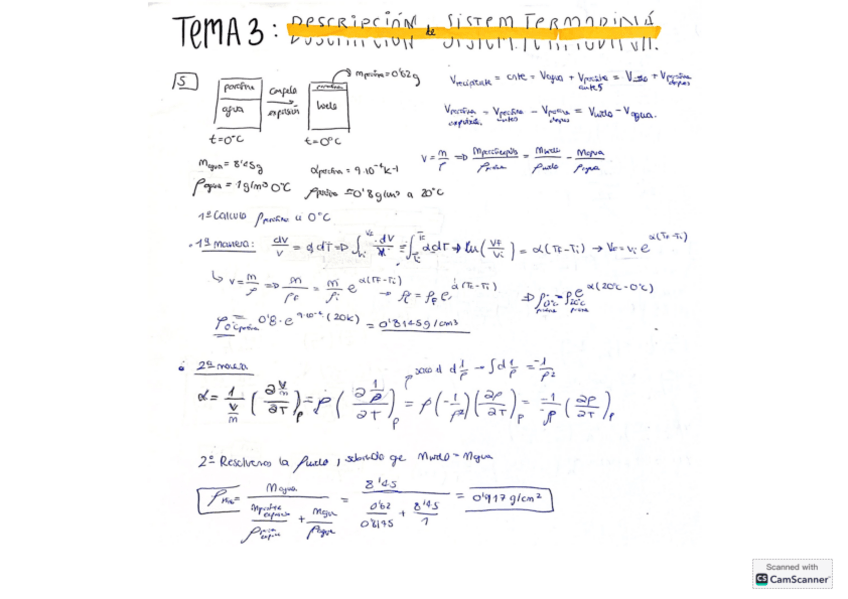 TEMA 3: DESCRIPCIÓN de SISTEM TERMODINÁ.
5
parafina
agua
Congela
expulsión
parafina
hielo
mparafina=0'62g
t=0°C
t=0°C
Vrecipiente = cnte = Vagua + Vparafina antes = Vhielo + Vparafina despues
Vparafina expulsada = Vparafina antes - Vparafina despues = Vhielo - Vagua.
magua = 8'45g
αparafina = 9·10⁻⁴ k-1
ρagua = 1g/m³ 0°C
ρparafina = 0'8g/cm³ a 20°C
1º Calculo ρparafina a 0°C
· 1ª manera: dV/V = α dT => ∫ dV/V = ∫ αdT → ln(Vf/Vi) = α(Tf-Ti) → Vf = Vi e^α(Tf-Ti)
↳ V = m/ρ => m/ρf = m/ρi e^α(Tf-Ti) → ρi = ρf e^α(Tf-Ti) => ρ0°C = ρ20°C e^α(20°C-0°C)
ρ0°C parafina = 0'8·e^9·10⁻⁴·(20k) = 0'8145g/cm³
2ª manera
α = 1/(V/m) (∂V/m / ∂T)p = ρ (∂ 1/ρ / ∂T)p = ρ (-1/ρ²) (∂ρ/∂T)p = -1/ρ (∂ρ/∂T)p
2º Resolvemos la ρhielo, sabiendo qe mhielo = magua
ρhielo = magua / (mparafina expulsada / ρparafina expulsada + magua / ρagua) = 8'45 / (0'62/0'8145 + 8'45/1) = 0'917 g/cm²
Scanned with
CS CamScanner